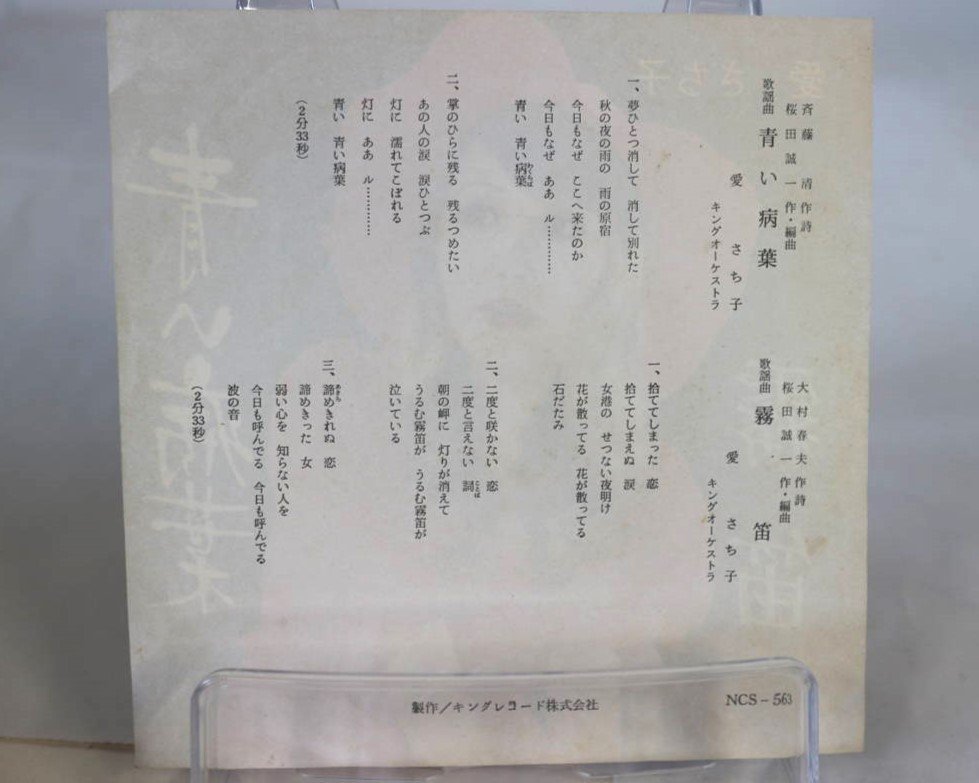 斉藤 清 作詩
桜田誠一 作・編曲
歌謡曲 青い病葉
愛 さち子
キングオーケストラ
一、夢ひとつ消して 消して別れた
秋の夜の雨の 雨の原宿
今日もなぜ ここへ来たのか
今日もなぜ ああ ル…………
青い 青い病葉
二、掌のひらに残る 残るつめたい
あの人の涙 涙ひとつぶ
灯に 濡れてこぼれる
灯に ああ ル…………
青い 青い病葉
(2分33秒)
大村春夫 作詩
桜田誠一 作・編曲
歌謡曲 霧笛
愛 さち子
キングオーケストラ
一、捨ててしまった 恋
捨ててしまえぬ 涙
女港の せつない夜明け
花が散ってる 花が散ってる
石だたみ
二、二度と咲かない 恋
二度と言えない 詞
朝の岬に 灯りが消えて
うるむ霧笛が うるむ霧笛が
泣いている
三、諦めきれぬ 恋
諦めきった 女
弱い心を 知らない人を
今日も呼んでる 今日も呼んでる
波の音
(2分33秒)
製作/キングレコード株式会社
NCS-563